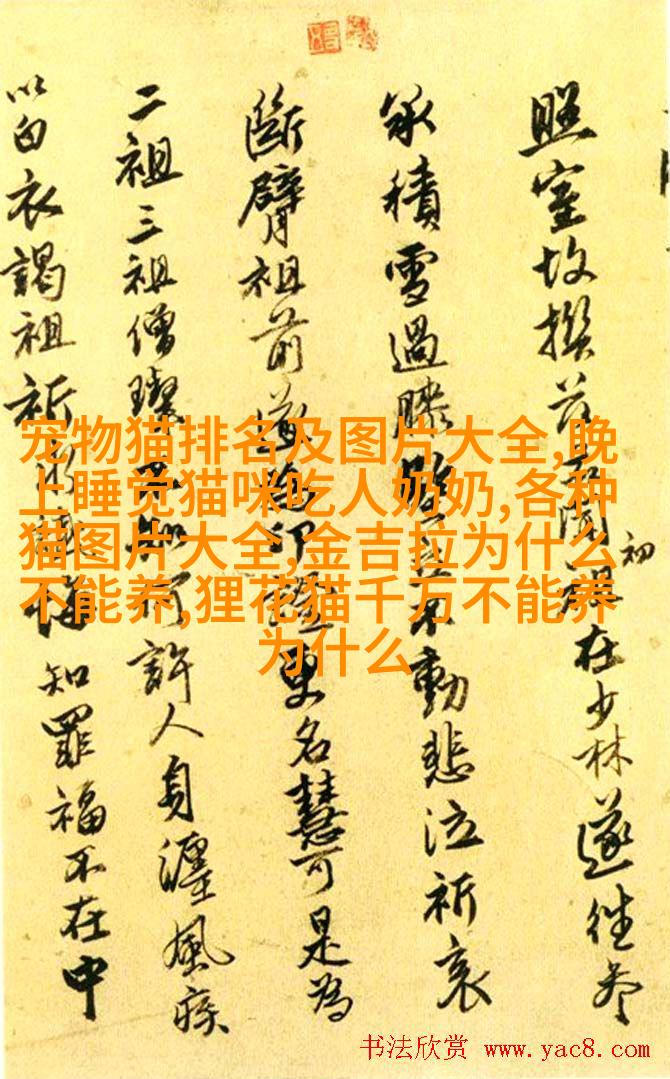 照室故撰聞初祖在少林遂往參
承積雪過膝立不動悲泣祈哀
斷臂祖前遂為印證更名慧可是為
二祖三祖僧璨不知何許人身纏風疾
以白衣謁祖祈懺悔知罪福不在中
宠物猫排名及图片大全,晚
上睡觉猫咪吃人奶奶,各种
猫图片大全,金吉拉为什么
不能养,狸花猫千万不能养
为什么
书法欣赏 www.yac8.com